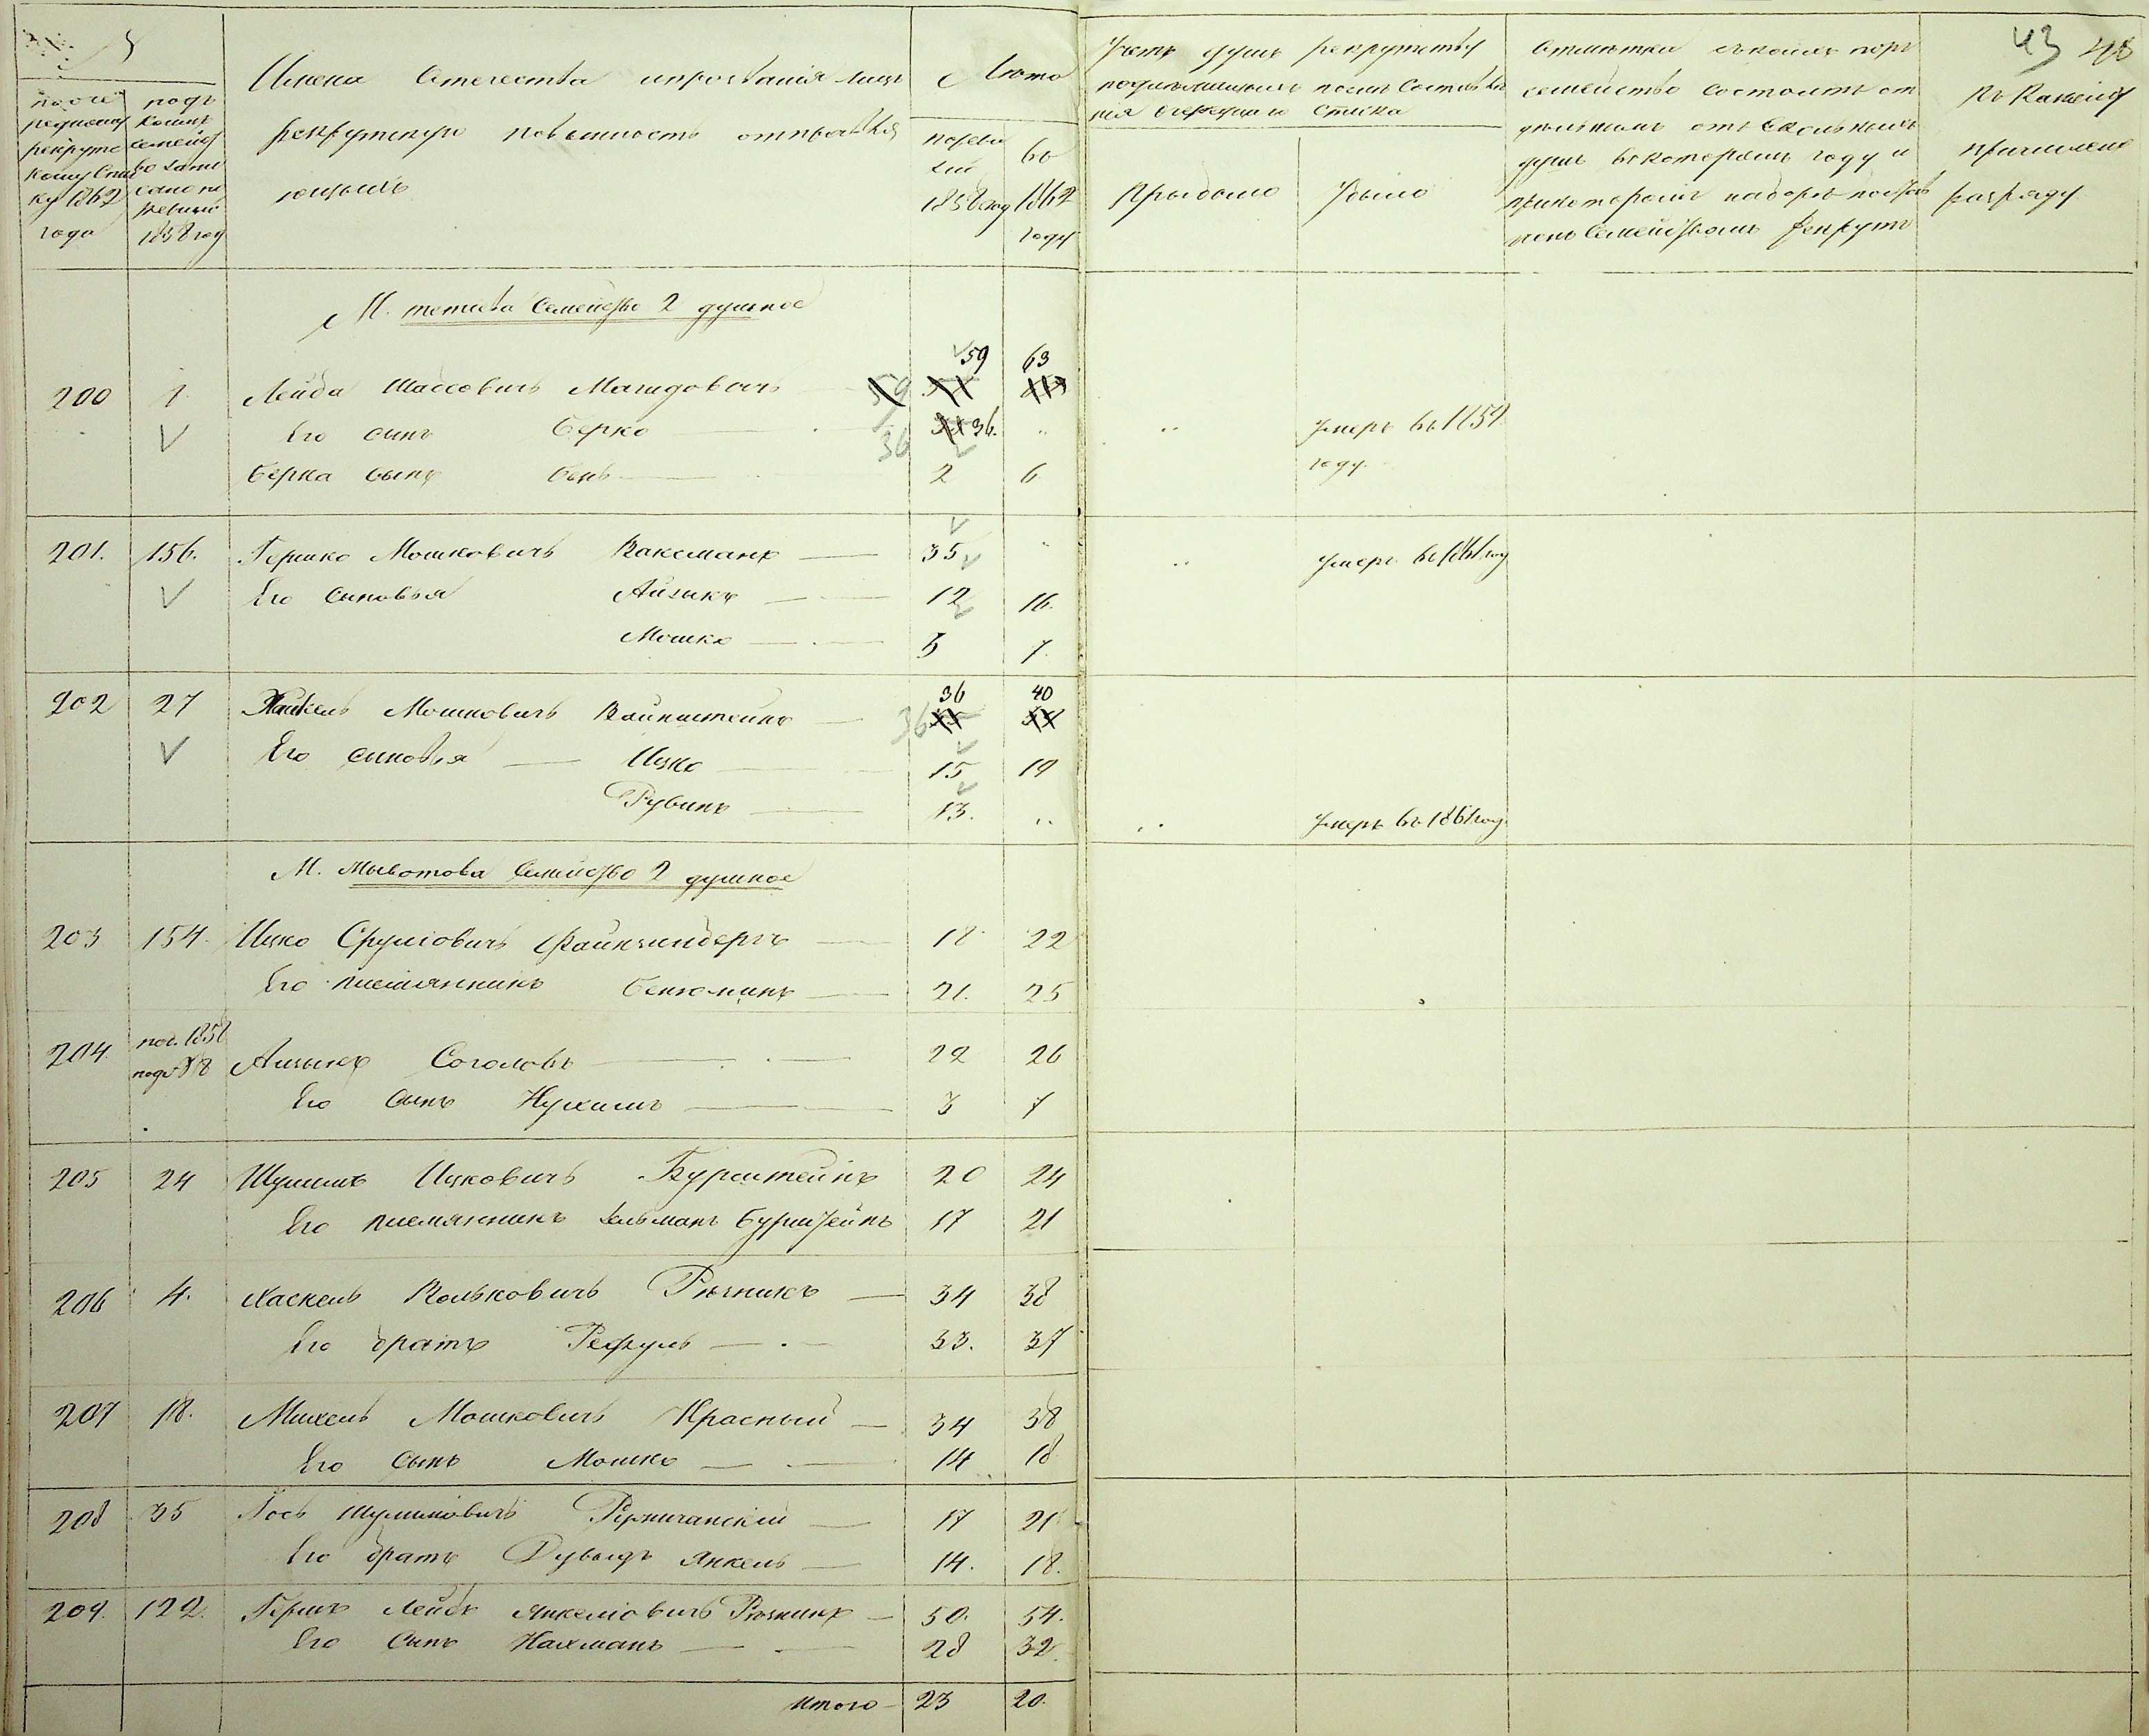 №
по очередному рекрутскому списку 1862 года
подъ коимъ семейство записано по ревизіи 1858 год
Имена Отечества и прозванія лицъ
рекрутскую повинность отправля
ющихъ
Лѣта
по ревизіи 1858 год
въ 1862 году
Учетъ душъ рекрутству
подлежащихъ послѣ составле
нія очереднаго списка
Прибыло
Убыло
Отмѣтки съ коихъ поръ
семейство состоитъ от
дѣльнымъ отъ сколькихъ
душъ въ которомъ году и
при которомъ наборѣ постав
ленъ семействомъ рекрутъ
43 48
Къ какому
причислено
разряду
М. Тетіева Семейство 2 душное
59 63
200 1 Лейба Мошковичъ 59
Его сынъ Берко 36 36. " .. умеръ въ 1859
Берка сынъ Бень 2 6 году.
201. 156. Гершко Мошковичъ Ваксманъ 35 " .. умеръ въ 1861 год
Его сыновья Айзикъ 12 16.
Мошко 3 7.
36 40
202 27 Хайкель Мошковичъ Вайнштейнъ 36
Его сыновья Ицко 15 19
Рувинъ 13. .. .. умеръ въ 1861 год.
М. Семейство 2 душное
203 154. Ицко Сруліовичъ Файнзильбергъ 18 22
Его племянникъ Беньюминъ 21. 25
204 по 1858 подъ № 8 Айзикъ Соголовъ 22 26
Его сынъ Нухимъ 3 7
205 24 Шулимъ Ицковичъ Бурштейнъ 20 24
Его племянникъ Зельманъ Бурштейнъ 17 21
206 4. Хаскель Вольковичъ Рѣзникъ 34 38
Его братъ Рефуль 33. 37
207 18. Михель Мошковичъ Красный 34 38
Его сынъ Мошко 14 18
208 35 Іось Шулимовичъ 17 21
Его братъ Дувыдъ Янкель 14. 18.
209. 122. Гершъ Лейбъ Янкеліовичъ Рѣзникъ 50. 54.
Его сынъ Нахманъ 28 32.
Итого 23 20.